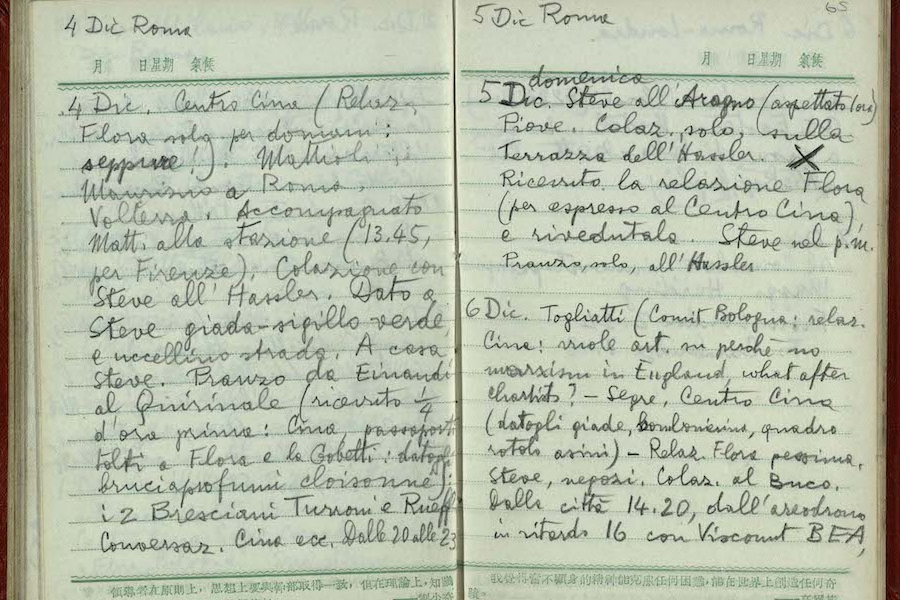 4 Dic Roma
月 日星期 氣候
4 Dic. Centro Cina (Relaz.
Flora solo per domani:
seppure!). Mattioli
Maurizio a Roma.
Volterra. Accompagnato
Matt. alla stazione (13.45,
per Firenze). Colazione con
Steve all'Hassler. Dato a
Steve giada-sigillo verde
e uccellino strada. A casa
Steve. Pranzo da Einaudi
al Quirinale (ricevuto 1/4
d'ora prima: Cina, passaporti
tolti a Flora e la Gobetti: datogli
bruciaprofumi cloisonné):
i 2 Bresciani Turroni e Rueff
Conversaz. Cina ecc. Dalle 20 alle 23
領導者在原則上，思想上要與幹部取得一致，但在理論上，知識
65
5 Dic Roma
月 日星期 氣候
domenica
5 Dic. Steve all'Aragno (aspettato 1 ora)
Piove. Colaz. solo, sulla
Terrazza dell'Hassler. X
Ricevuto la relazione Flora
(per espresso al Centro Cina)
e rivedutala. Steve nel p.m.
Pranzo, solo, all'Hassler
6 Dic. Togliatti (Comit Bologna: relaz.
Cina: vuole art. su perché no
marxism in England, what after
chartists? – Segre, Centro Cina
(datogli giade, quadro
rotolo asini) – Relaz. Flora pessima.
Steve, nepozi. Colaz. al Buco.
Dalla città 14.20, dall'aerodromo
in ritardo 16 con Viscount BEA,
我覺得奮不顧身的精神能克服任何困難，能在世界上創造任何奇